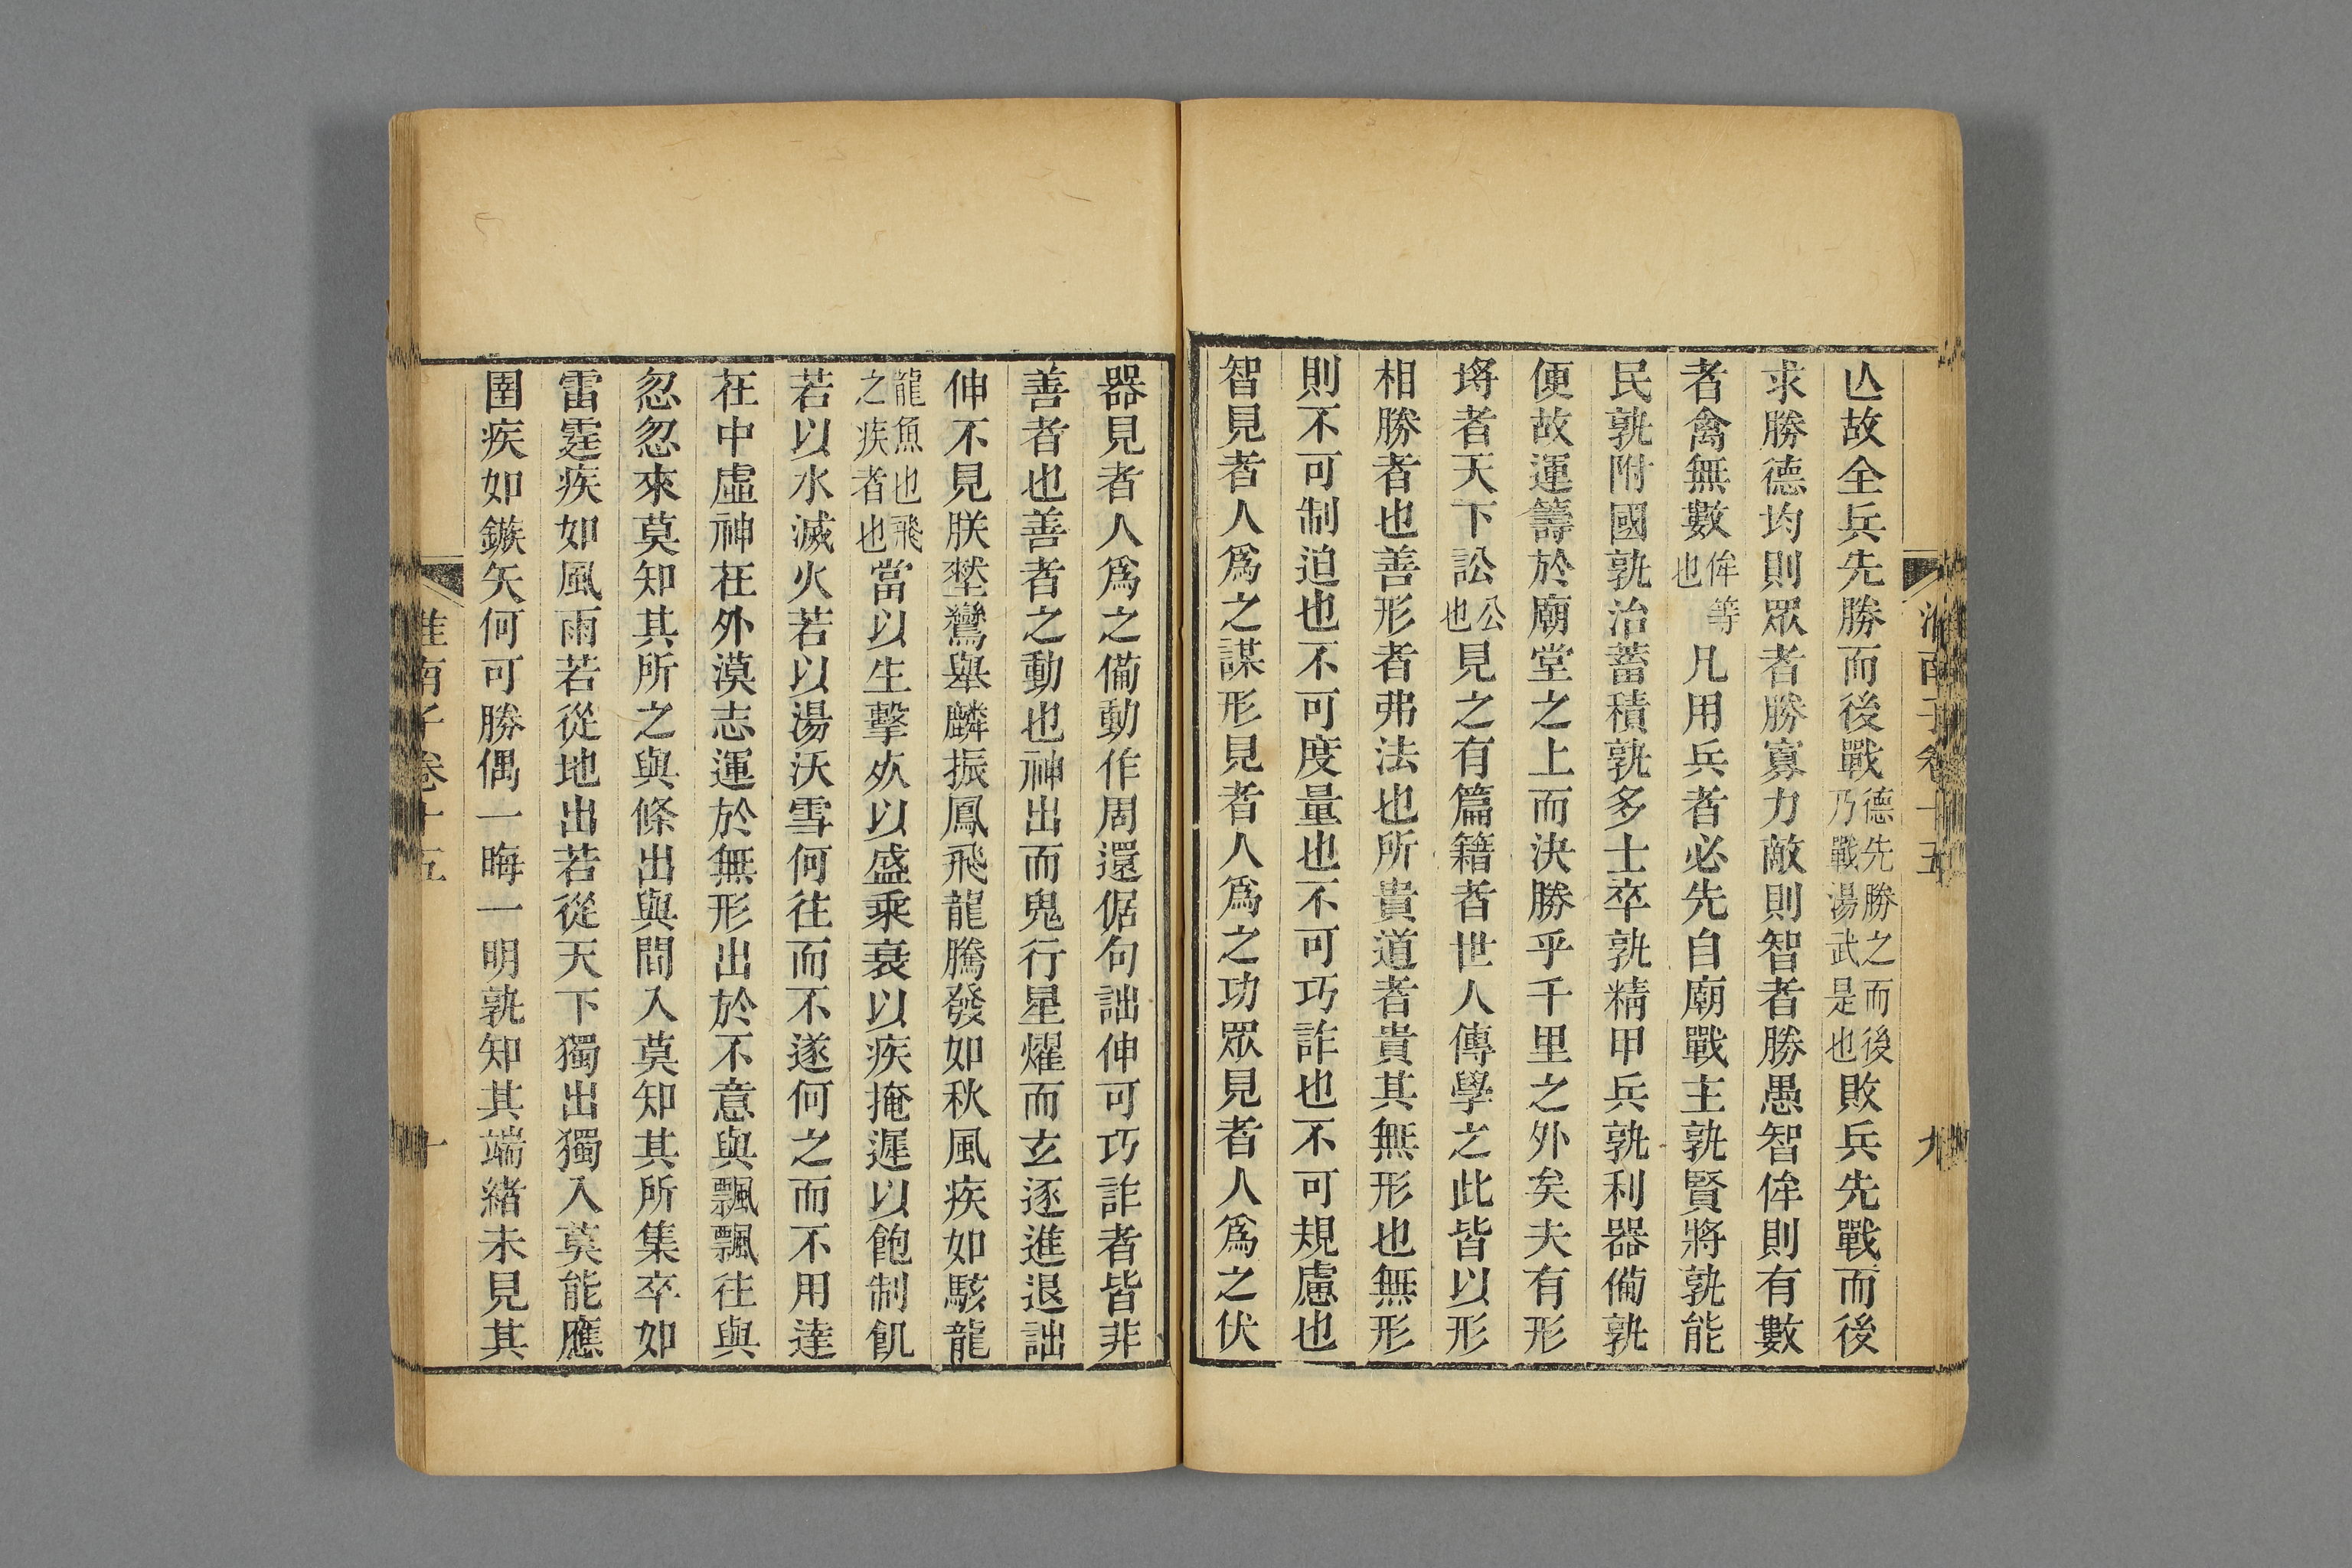 淮南子卷十五 九
亾故全兵先勝而後戰德先勝之而後乃戰湯武是也敗兵先戰而後
求勝德均則眾者勝寡力敵則智者勝愚智侔則有數
者禽無數侔等也凡用兵者必先自廟戰主孰賢將孰能
民孰附國孰治蓄積孰多士卒孰精甲兵孰利器備孰
便故運籌於廟堂之上而決勝乎千里之外矣夫有形
埒者天下訟公也見之有篇籍者世人傳學之此皆以形
相勝者也善形者弗法也所貴道者貴其無形也無形
則不可制迫也不可度量也不可巧詐也不可規慮也
智見者人爲之謀形見者人爲之功眾見者人爲之伏
器見者人爲之備動作周還倨句詘伸可巧詐者皆非
善者也善者之動也神出而鬼行星燿而玄逐進退詘
伸不見朕埜鸞舉麟振鳳飛龍騰發如秋風疾如駭龍
龍魚也飛之疾者也當以生擊死以盛乘衰以疾掩遲以飽制飢
若以水滅火若以湯沃雪何往而不遂何之而不用達
在中虛神在外漠志運於無形出於不意與飄飄往與
忽忽來莫知其所之與條出與間入莫知其所集卒如
雷霆疾如風雨若從地出若從天下獨出獨入莫能應
圉疾如鏃矢何可勝偶一晦一明孰知其端緒未見其
淮南子卷十五 十